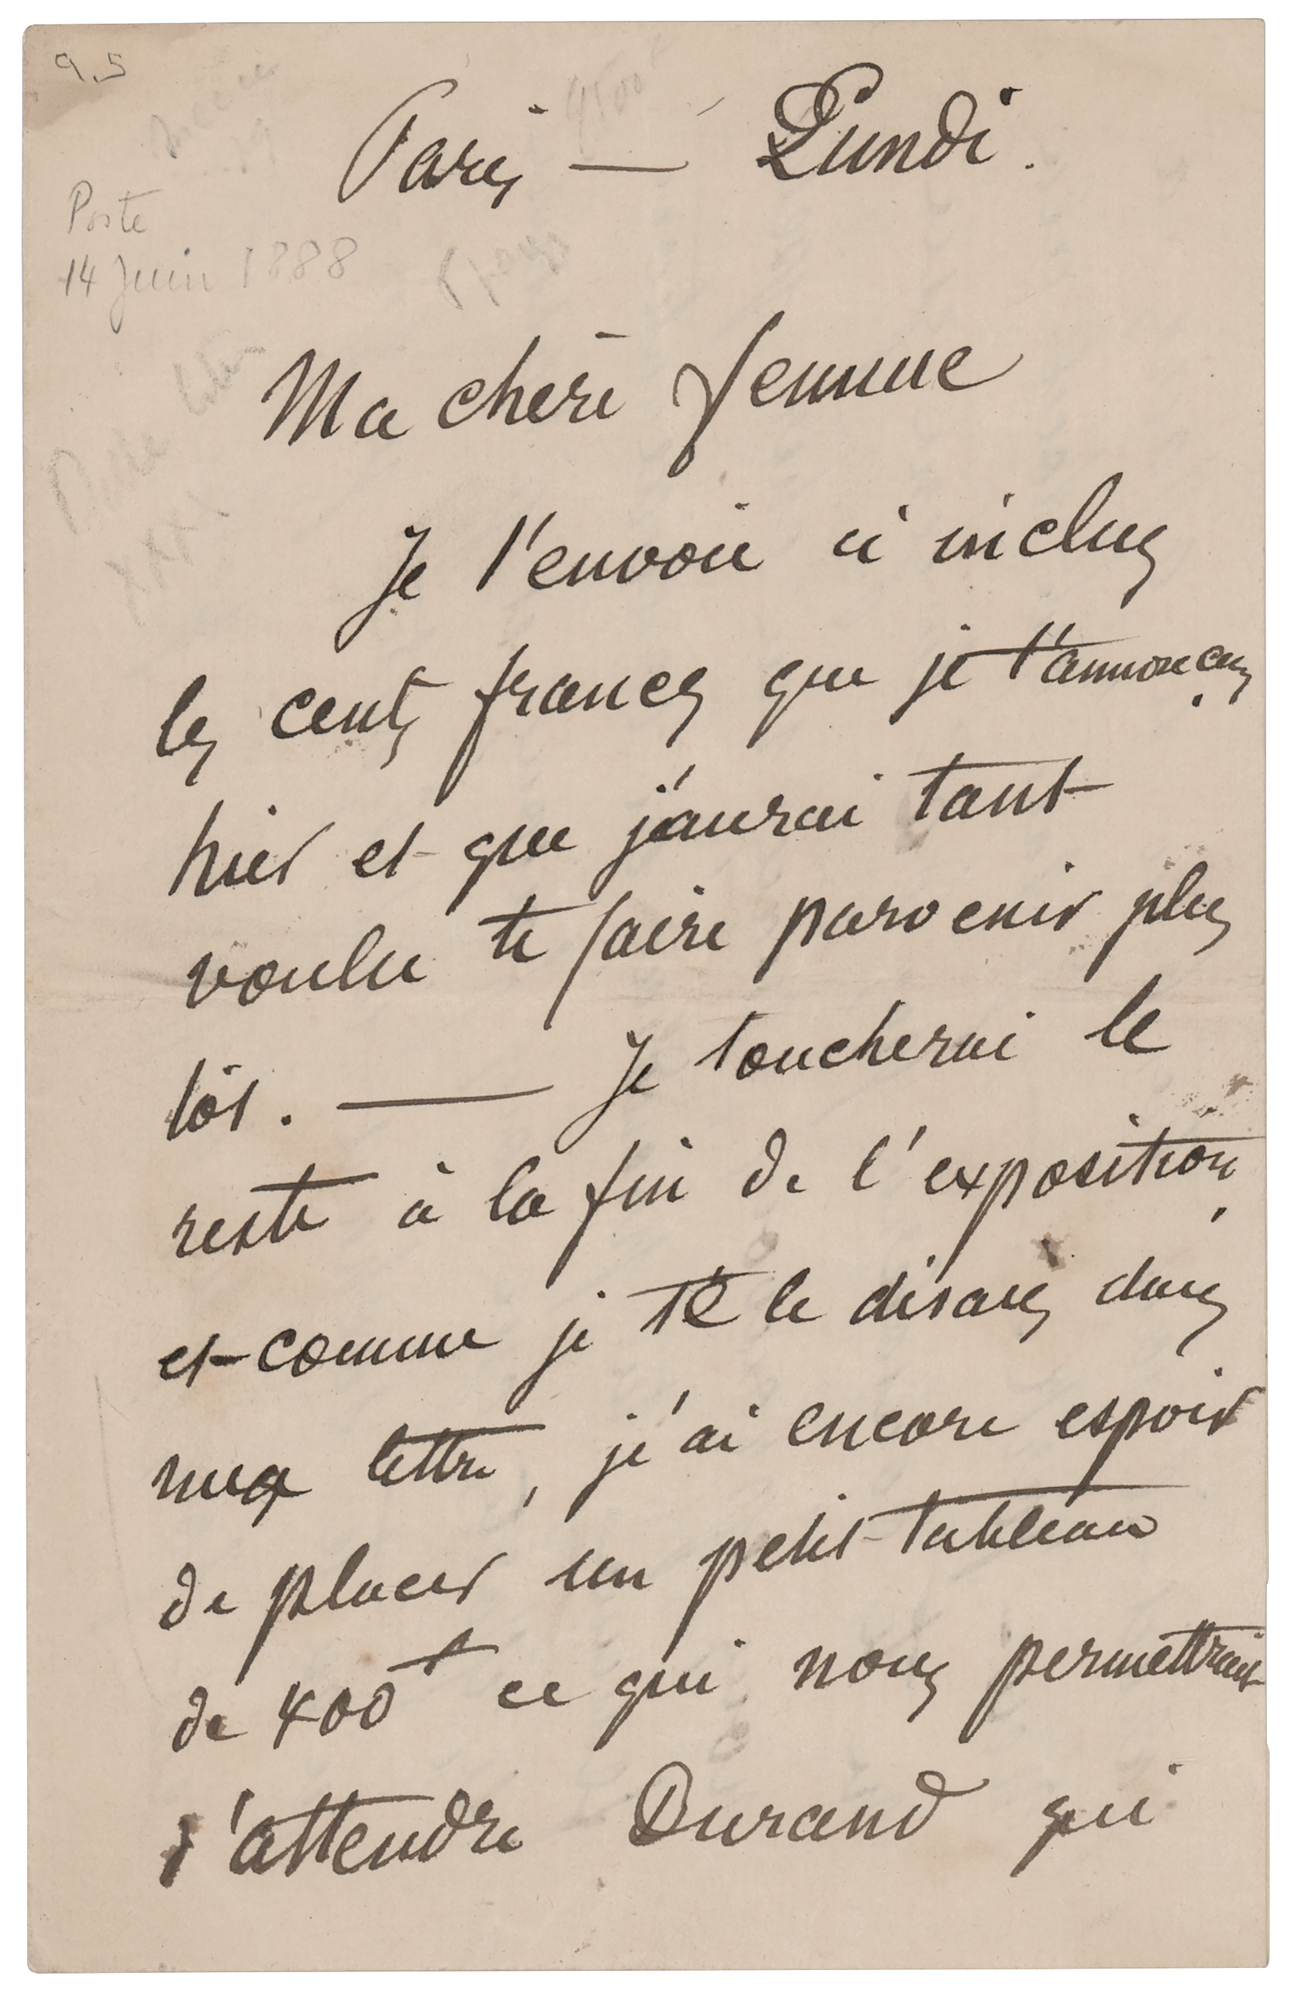 9.5
Paris — Lundi.
Poste
14 Juin 1888
Ma chère femme
Je t'envoie ci inclus
les cents francs que je t'annonçais
hier et que j'aurai tant
voulu te faire parvenir plus
tôt. — Je toucherai le
reste à la fin de l'exposition,
et comme je te le disais dans
ma lettre, j'ai encore espoir
de placer un petit tableau
de 400f ce qui nous permettrait
d'attendre Durand qui